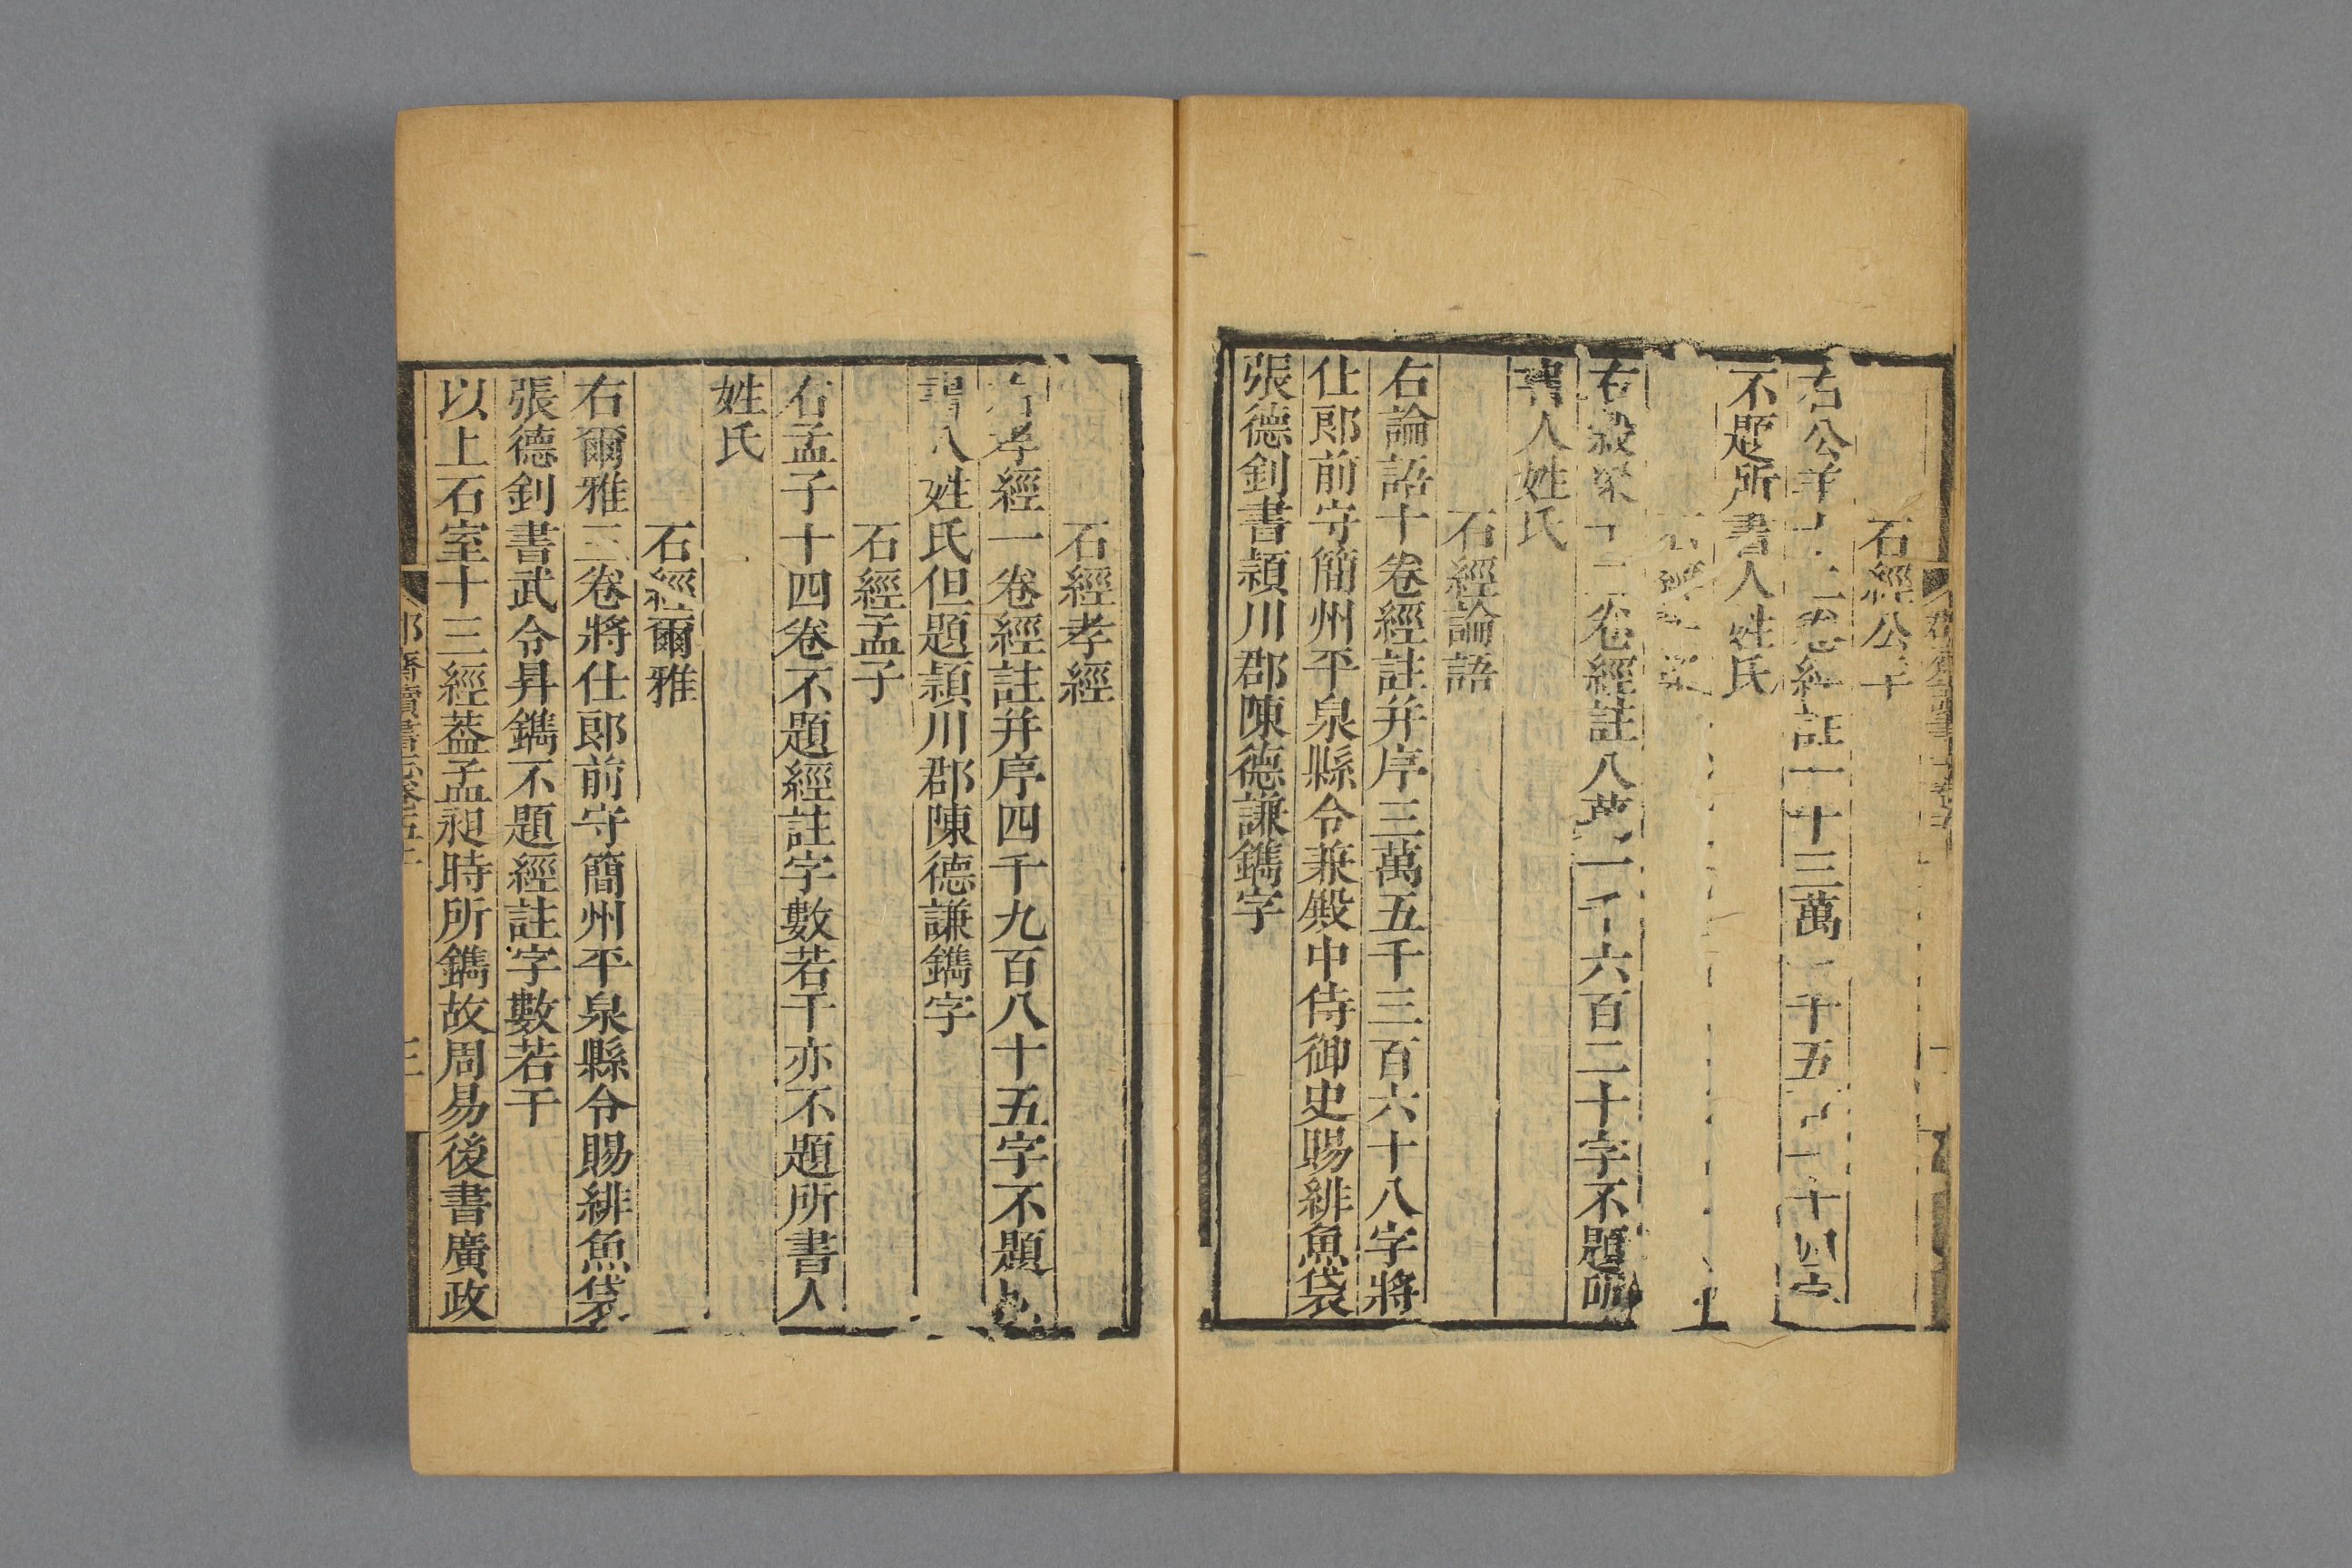 石經公羊
右公羊十二卷經註一十三萬一千五百一十四字
不題所書人姓氏
石經穀梁
右穀梁十二卷經註八萬一千六百二十字不題所
書人姓氏
石經論語
右論語十卷經註并序三萬五千三百六十八字將
仕郎前守簡州平泉縣令兼殿中侍御史賜緋魚袋
張德釗書頴川郡陳德謙鐫字
石經孝經
右孝經一卷經註并序四千九百八十五字不題所
書人姓氏但題頴川郡陳德謙鐫字
石經孟子
右孟子十四卷不題經註字數若干亦不題所書人
姓氏
石經爾雅
右爾雅三卷將仕郎前守簡州平泉縣令賜緋魚袋
張德釗書武令昇鐫不題經註字數若干
以上石室十三經葢孟昶時所鐫故周易後書廣政